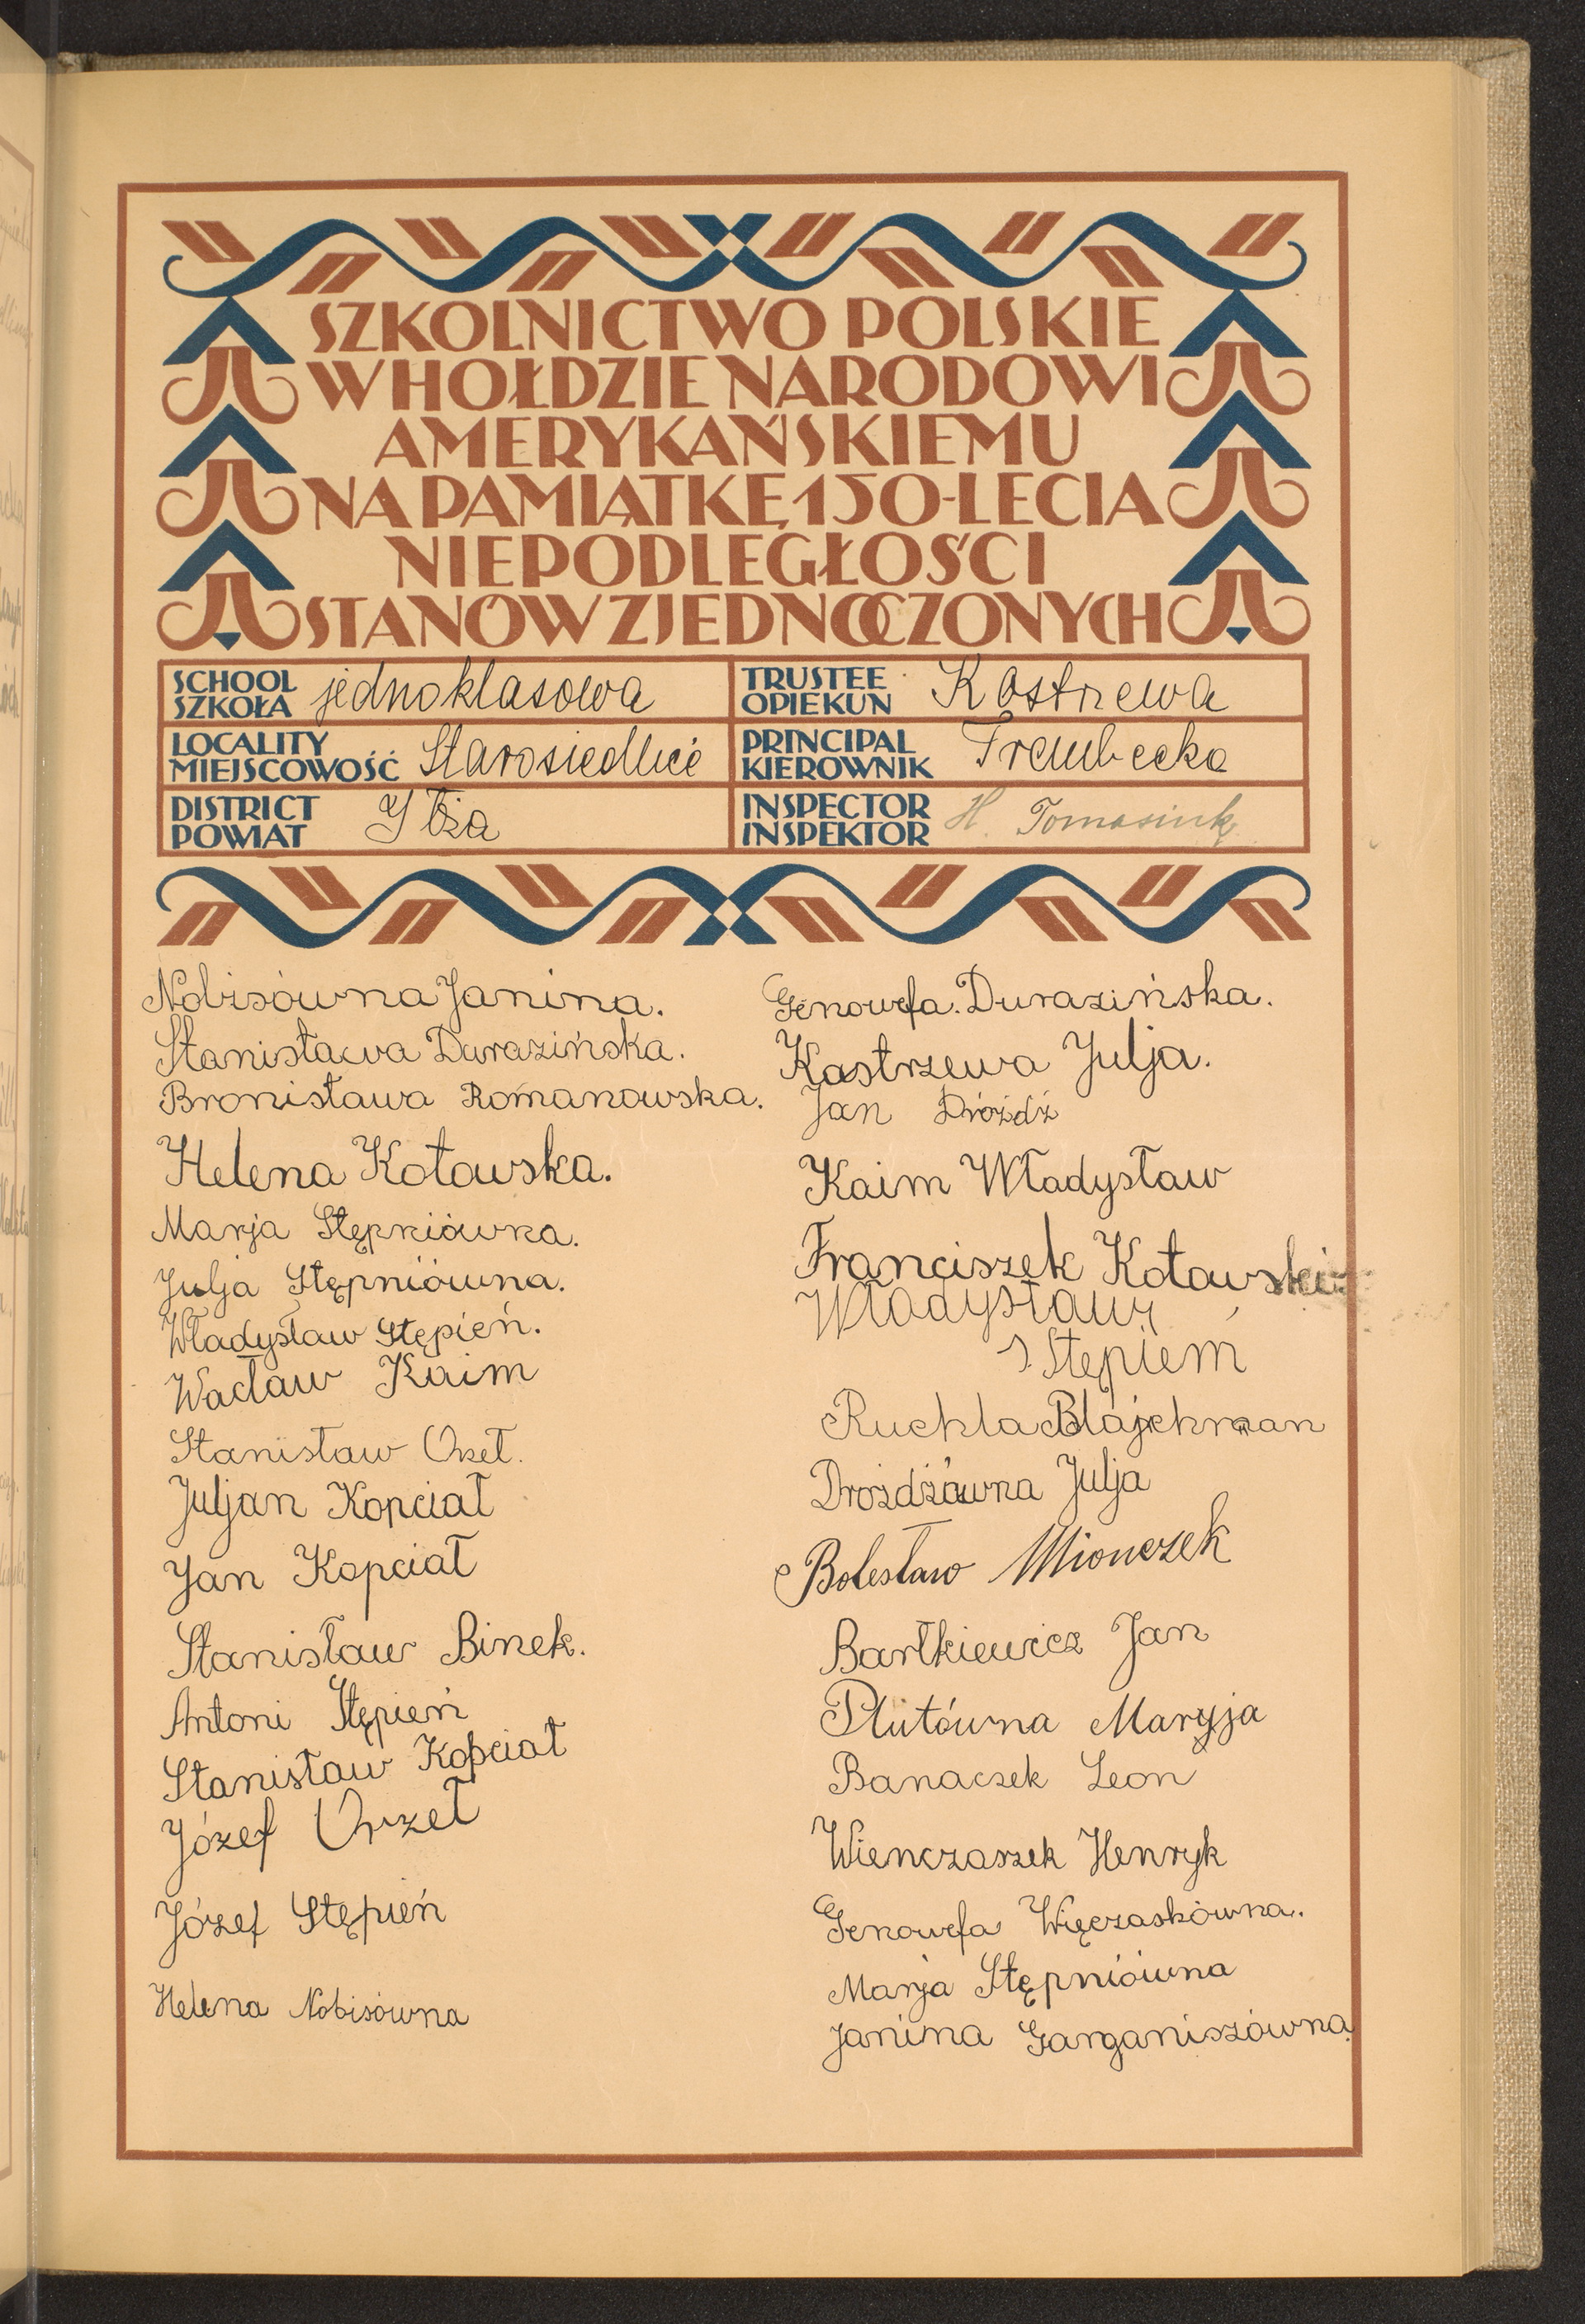 SZKOLNICTWO POLSKIE
W HOŁDZIE NARODOWI
AMERYKAŃSKIEMU
NA PAMIĄTKĘ 150-LECIA
NIEPODLEGŁOŚCI
STANÓW ZJEDNOCZONYCH
SCHOOL
SZKOŁA jednoklasowa
TRUSTEE
OPIEKUN Kostrzewa
LOCALITY
MIEJSCOWOŚĆ Starosiedlice
PRINCIPAL
KIEROWNIK Trembecka
DISTRICT
POWIAT Iłża
INSPECTOR
INSPEKTOR H.
Nobisówna Janina.
Stanisława Durazińska.
Bronisława Romanowska.
Helena Kotowska.
Marja Stępniówna.
Julja Stępniówna.
Władysław Stępień.
Wacław Kaim
Stanisław
Juljan Kopciał
Jan Kopciał
Stanisław Binek.
Antoni Stępień
Stanisław Kopciał
Józef Orzeł
Józef Stępień
Helena Nobisówna
Genowefa. Durazińska.
Kastrzewa Julja.
Jan Dróżdż
Kaim Władysław
Franciszek Kotowski
Władysław
Stępień
Ruchla Blajchman
Drożdżówna Julja
Bolesław Mionczek
Bartkiewicz Jan
Plutówna Maryja
Banaczek Leon
Wienczaszek Henryk
Genowefa Więczaskówna.
Marja Stępniówna
Janina Garganiszówna